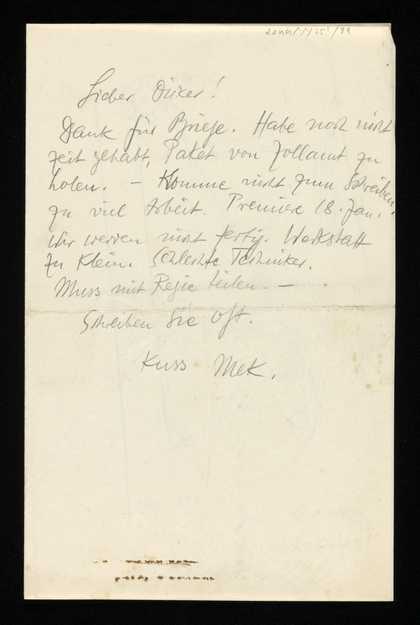 Lieber Dicker!
Dank für Briefe. Habe noch nicht
Zeit gehabt, Paket von Zollamt zu
holen. – Komme nicht zum Schreiben,
zu viel Arbeit. Premiere 18. Jan.
Wir werden nicht fertig. Werkstatt
zu klein. Schlechte Techniker.
Muss mit Regie teilen. –
Schreiben Sie oft.
Kuss Mek.